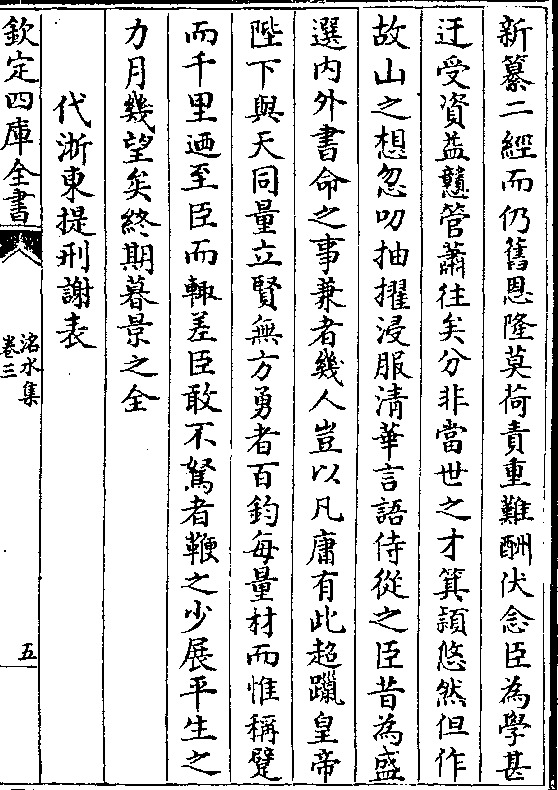 新纂二經而仍舊恩隆莫荷責重難酬伏念臣為學甚
迂受資益戇管蕭往矣分非當世之才箕潁悠然但作
故山之想忽叨抽擢浸服清華言語侍從之臣昔為盛
選内外書命之事兼者幾人豈以凡庸有此超躐皇帝
陛下與天同量立賢無方勇者百鈞每量材而惟稱躄
而千里迺至臣而輙差臣敢不駑者鞭之少展平生之
力月幾望矣終期暮景之全
代浙東提刑謝表
欽定四庫全書
洺水集
卷三
五